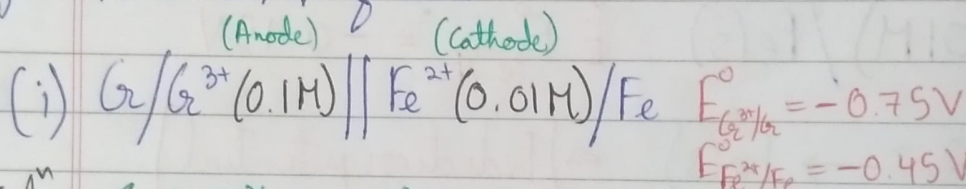 (Anode) (Cathode)
(i) Cr/Cr³⁺(0.1M)||Fe²⁺(0.01M)/Fe E⁰Cr³⁺/Cr = -0.75V
E⁰Fe²⁺/Fe = -0.45V